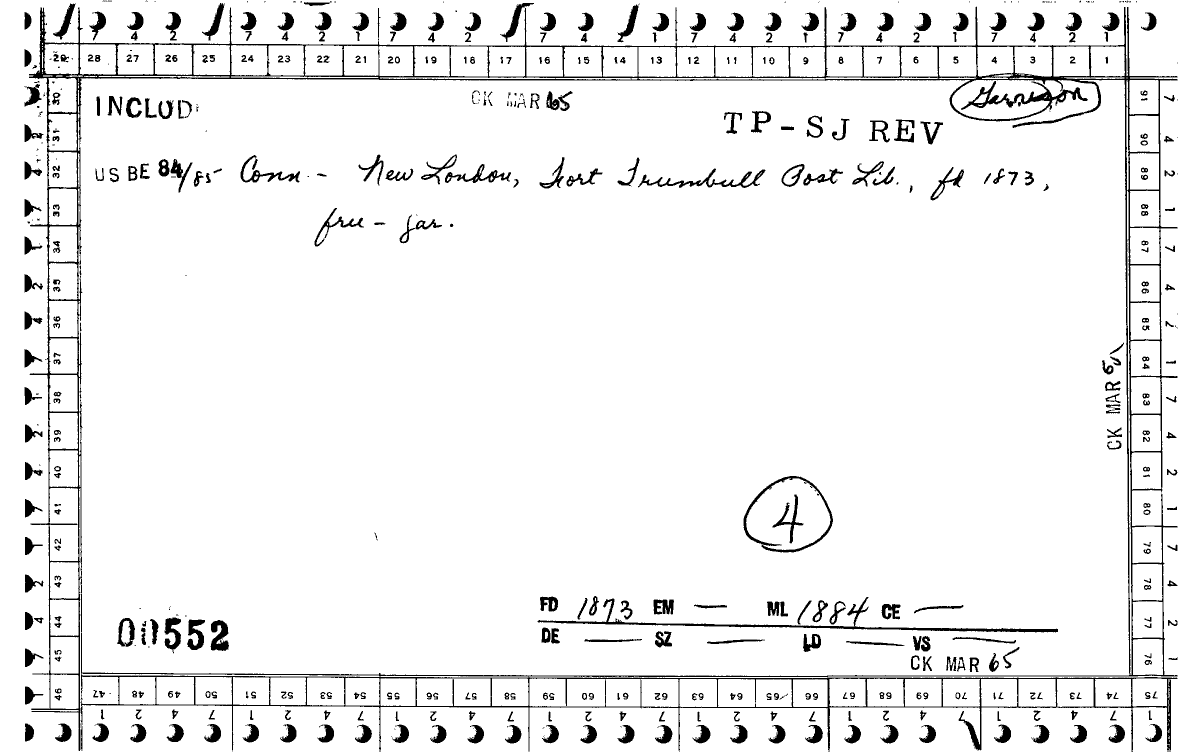 7 4 2 1 7 4 2 1 7 4 2 1 7 4 2 1 7 4 2 1 7 4 2 1 7 4 2 1
29 28 27 26 25 24 23 22 21 20 19 18 17 16 15 14 13 12 11 10 9 8 7 6 5 4 3 2 1
INCLUD
CK MAR 65
Garrison
TP-SJ REV
US BE 84/85 Conn. - New London, Fort Trumbull Post Lib., fd 1873,
free - gar.
4
FD 1873 EM — ML 1884 CE —
DE — SZ — LD — VS —
CK MAR 65
00552
30 31 32 33 34 35 36 37 38 39 40 41 42 43 44 45 46
91 90 89 88 87 86 85 84 83 82 81 80 79 78 77 76
7 4 2 1 7 4 2 1 7 4 2 1 7 4 2 1
CK MAR
47 48 49 50 51 52 53 54 55 56 57 58 59 60 61 62 63 64 65 66 67 68 69 70 71 72 73 74 75
1 2 4 7 1 2 4 7 1 2 4 7 1 2 4 7 1 2 4 7 1 2 4 7 1 2 4 7 1